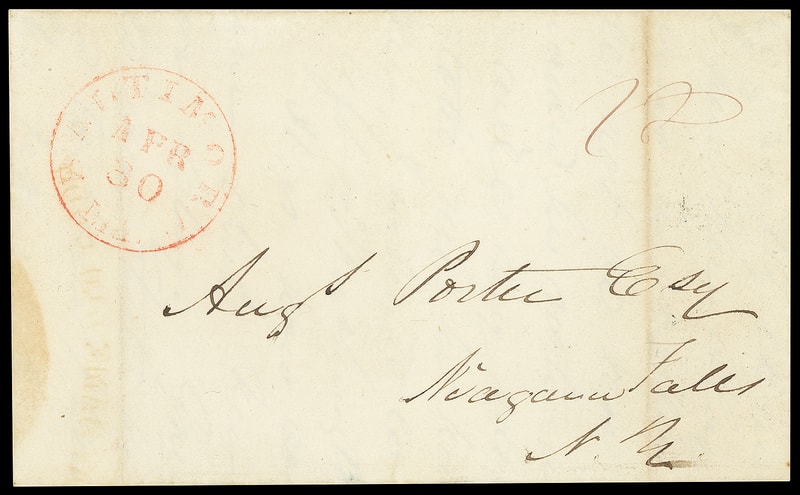 BALTIMORE Md.
APR
30
Augs Porter Esqr
Niagara Falls
N. Y.